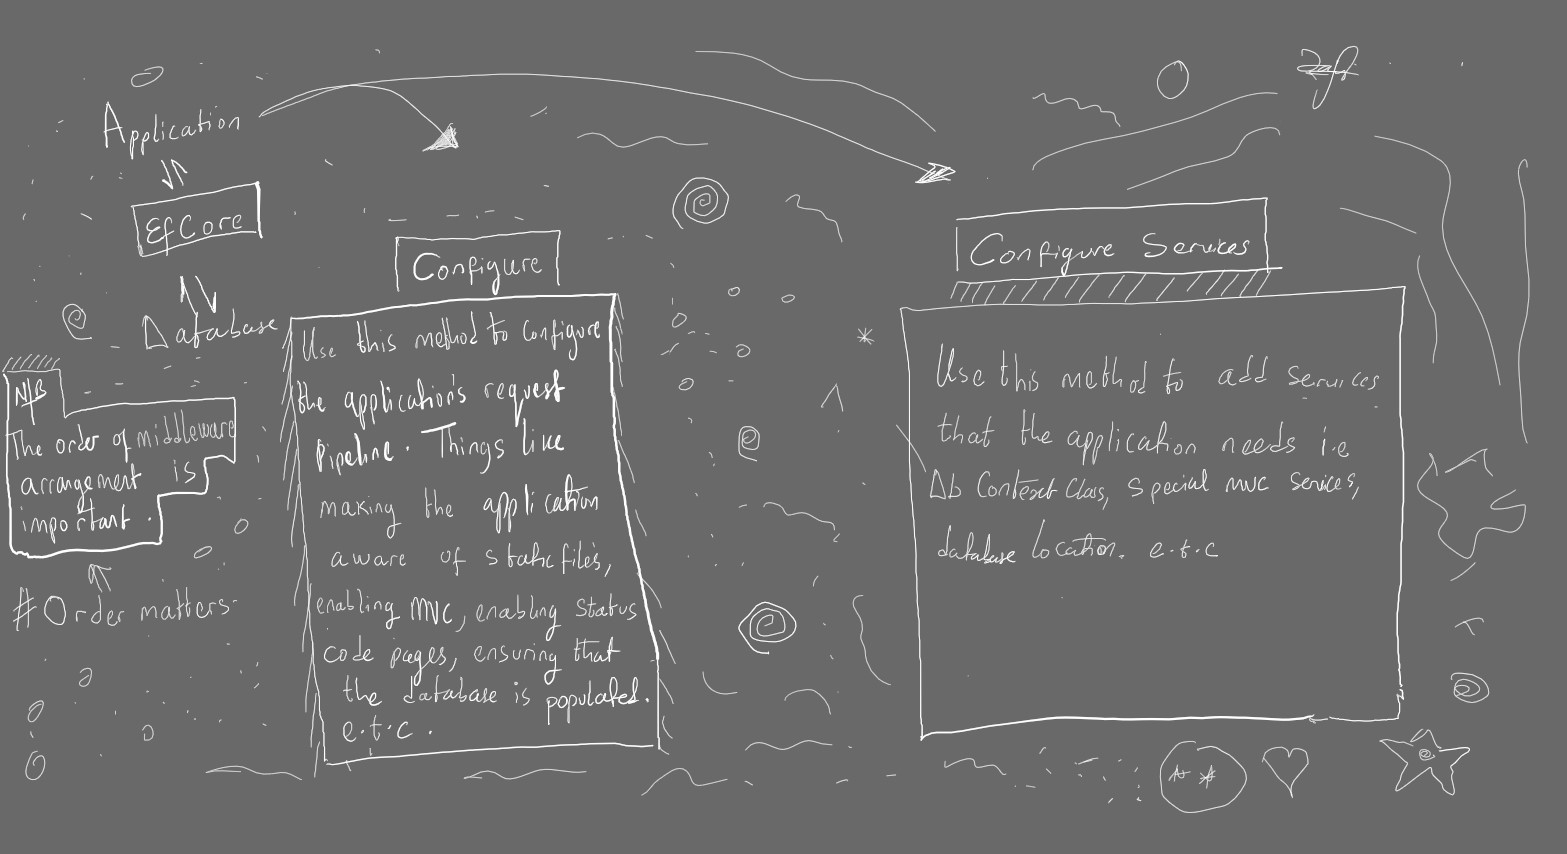 Application
EfCore
Database
N/B
The order of middleware
arrangement is
important.
#Order matters.
Configure
Use this method to configure
the application's request
Pipeline. Things like
making the application
aware of static files,
enabling MVC, enabling status
code pages, ensuring that
the database is populated.
e.t.c.
Configure Services
Use this method to add services
that the application needs i.e
Db Context Class, special mvc services,
database location. e.t.c